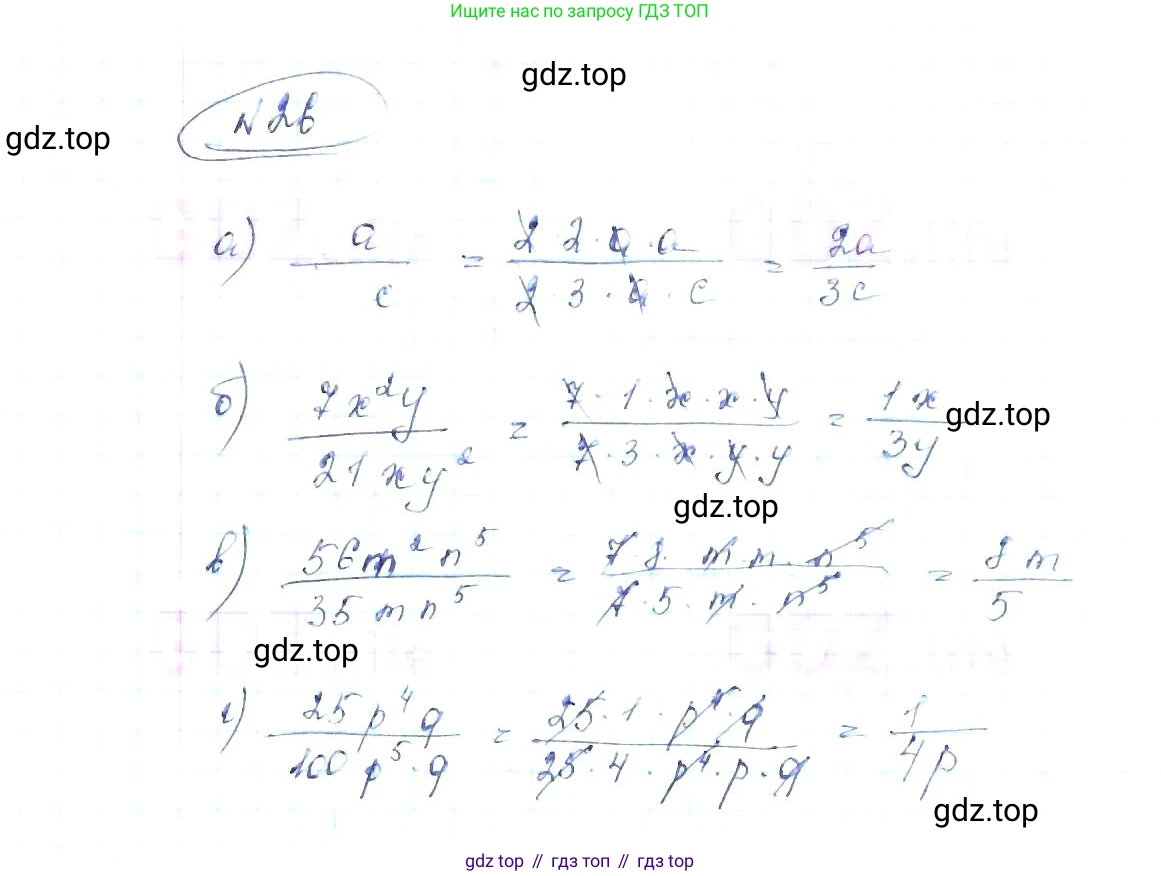 Ищите нас по запросу ГДЗ ТОП
gdz.top
N 26
gdz.top
а) a/c = (2·2·a·a)/(2·3·a·c) = 2a/3c
б) 7x²y/21xy² = (7·1·x·x·y)/(7·3·x·y·y) = 1x/3y
gdz.top
gdz.top
в) 56m²n⁵/35mn⁵ = (7·8·m·m·n⁵)/(7·5·m·n⁵) = 8m/5
gdz.top
г) 25p⁴q/100p⁵·q = (25·1·p⁴·q)/(25·4·p⁴·p·q) = 1/4p
gdz.top
gdz top // гдз топ // гдз top